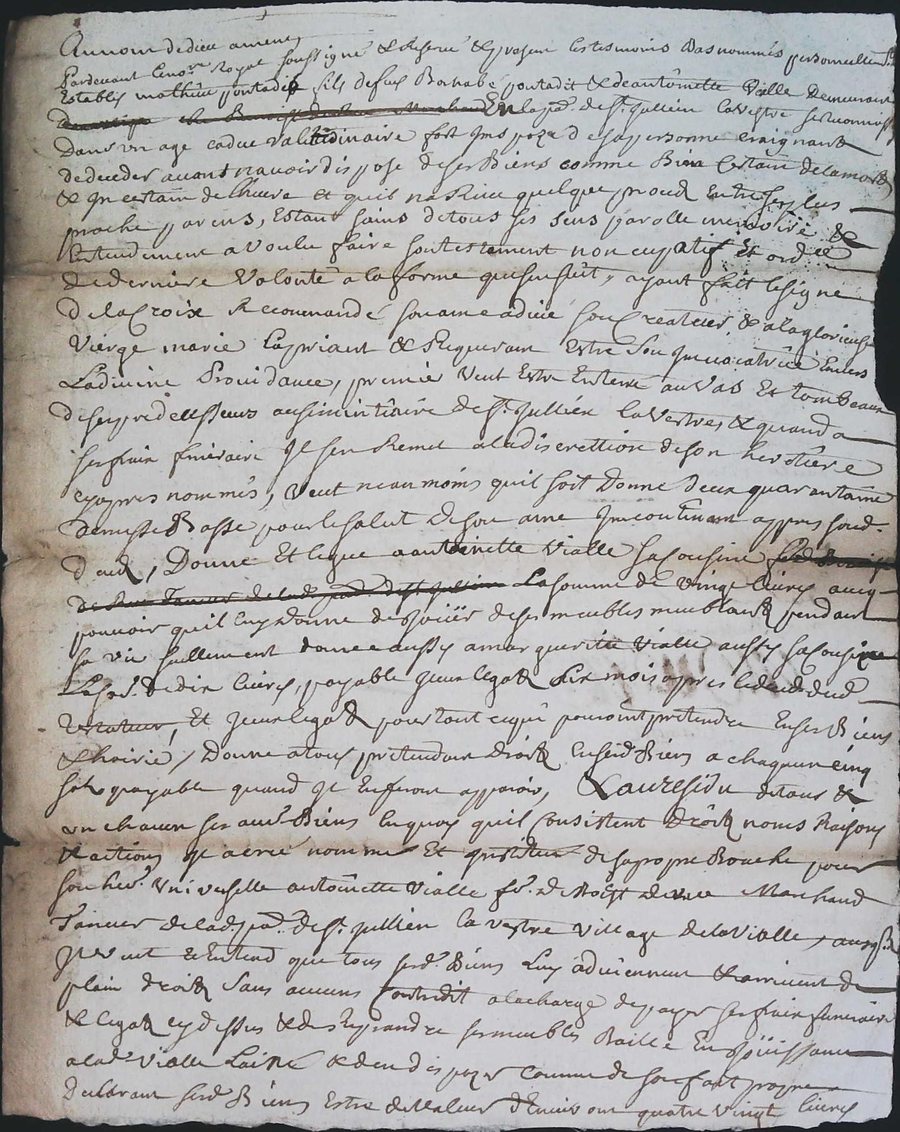 Au nom de dieu amen
Pardevant le no.re Royal soussigné & Reservé & presens les tesmoins bas nommés personnellem.t
Establis mathieu pontadit fils de feu Barnabé pontadit & de antoinette Vialle Demeurant
En la p.e de s.t Jullien la vestre se reconnoiss
Dans un age caduc valetudinaire fort de sa personne craignant
de deceder avant navoir dispozé de ses Biens comme Bien Certain de la mort
& Incertain de lheure et quil n quelque proces Entre ses plus
proche parens, Estant sains de tous ses sens parolle memoire &
Entendement a Voulu faire son testement noncupatif et ord.ce
de derniere Volonté a la forme que sensuit, ayant fait le signe
De la Croix Recommandé son ame a dieu son Createur & a la glorieuse
Vierge marie la priant & Requerant Estre son Invocatrice Envers
La divine Providance, premie Veut Estre Enterré au Vas Et tombeaux
de ses predecesseurs au simintiaire de s.t Jullien la Vestre & quand a
ses frais funeraire Il sen Remet a la discrettion de son heritiere
cy apres nommés, Veut neanmoins quil soit Donné deux quarantaine
de messe Basse pour le salut de son ame Incontinant appres sond.
deces, Donne Et legue a antoinette Vialle sa cousine
La somme de vingt livres avecq
pouvoir quil luy donne de Joüir de ses meubles meublant pendant
sa vie sullement donne aussy a marguerite Vialle aussy sa cousine
La so.e de dix livres, payable yceux legat six mois apres le deced dud
testateur, Et yceux legat pour tout ce qui pouroint pretendre En ses Biens
& hoirie, Donne a tous pretendant droit En sesd Biens a chaqu'un cinq
sols payable quand Il En feront apparoir, & au residu de tous &
un chacun ses au.e Biens En quoy quil Consistent Droit noms Raisons
& actions Il a crée nommé Et Institué de sa propre Bouche pour
son her.e Universelle antoinette Vialle f.e de Marchand
Tanneur de lad. pa. de s.t Jullien la vestre Village de la Vialle,
Il veut & Entend que tous sesd. Biens Luy adviennent & arrivent de
plain droit sans aucuns Contredit a la charge de payer ses frais funeraire
& legat cy dessus & de Reprandre ses meubles Baillé En Joüissance
a lad. Vialle Laine & den dispozer comme de son fait propre
Declarant sesd. Biens Estre de Valeur d'Environ quatre Vingt livres